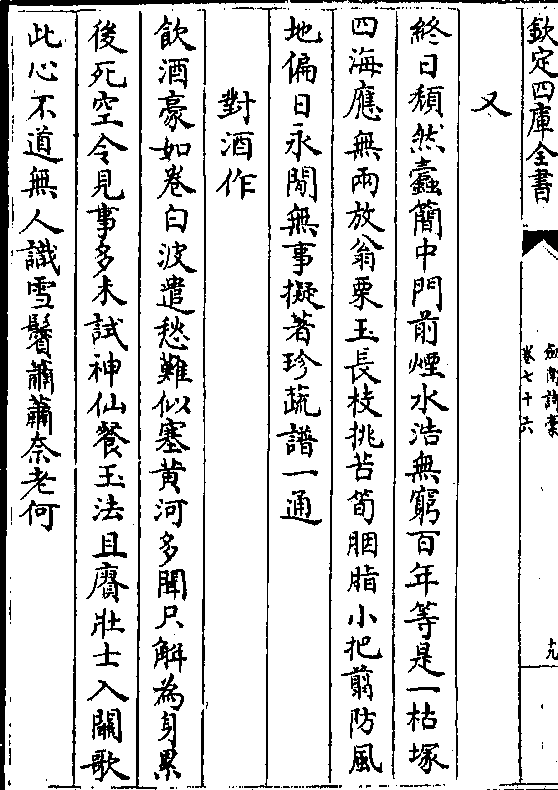 欽定四庫全書
劍南詩藁
卷七十六
九
又
終日頹然蠹簡中門前煙水浩無窮百年等是一枯塚
四海應無兩放翁栗玉長枝挑苦筍胭脂小把翦防風
地偏日永閒無事擬著珍蔬譜一通
對酒作
飲酒豪如卷白波遣愁難似塞黃河多聞只解為身累
後死空令見事多未試神仙餐玉法且賡壯士入關歌
此心不道無人識雪鬢蕭蕭奈老何